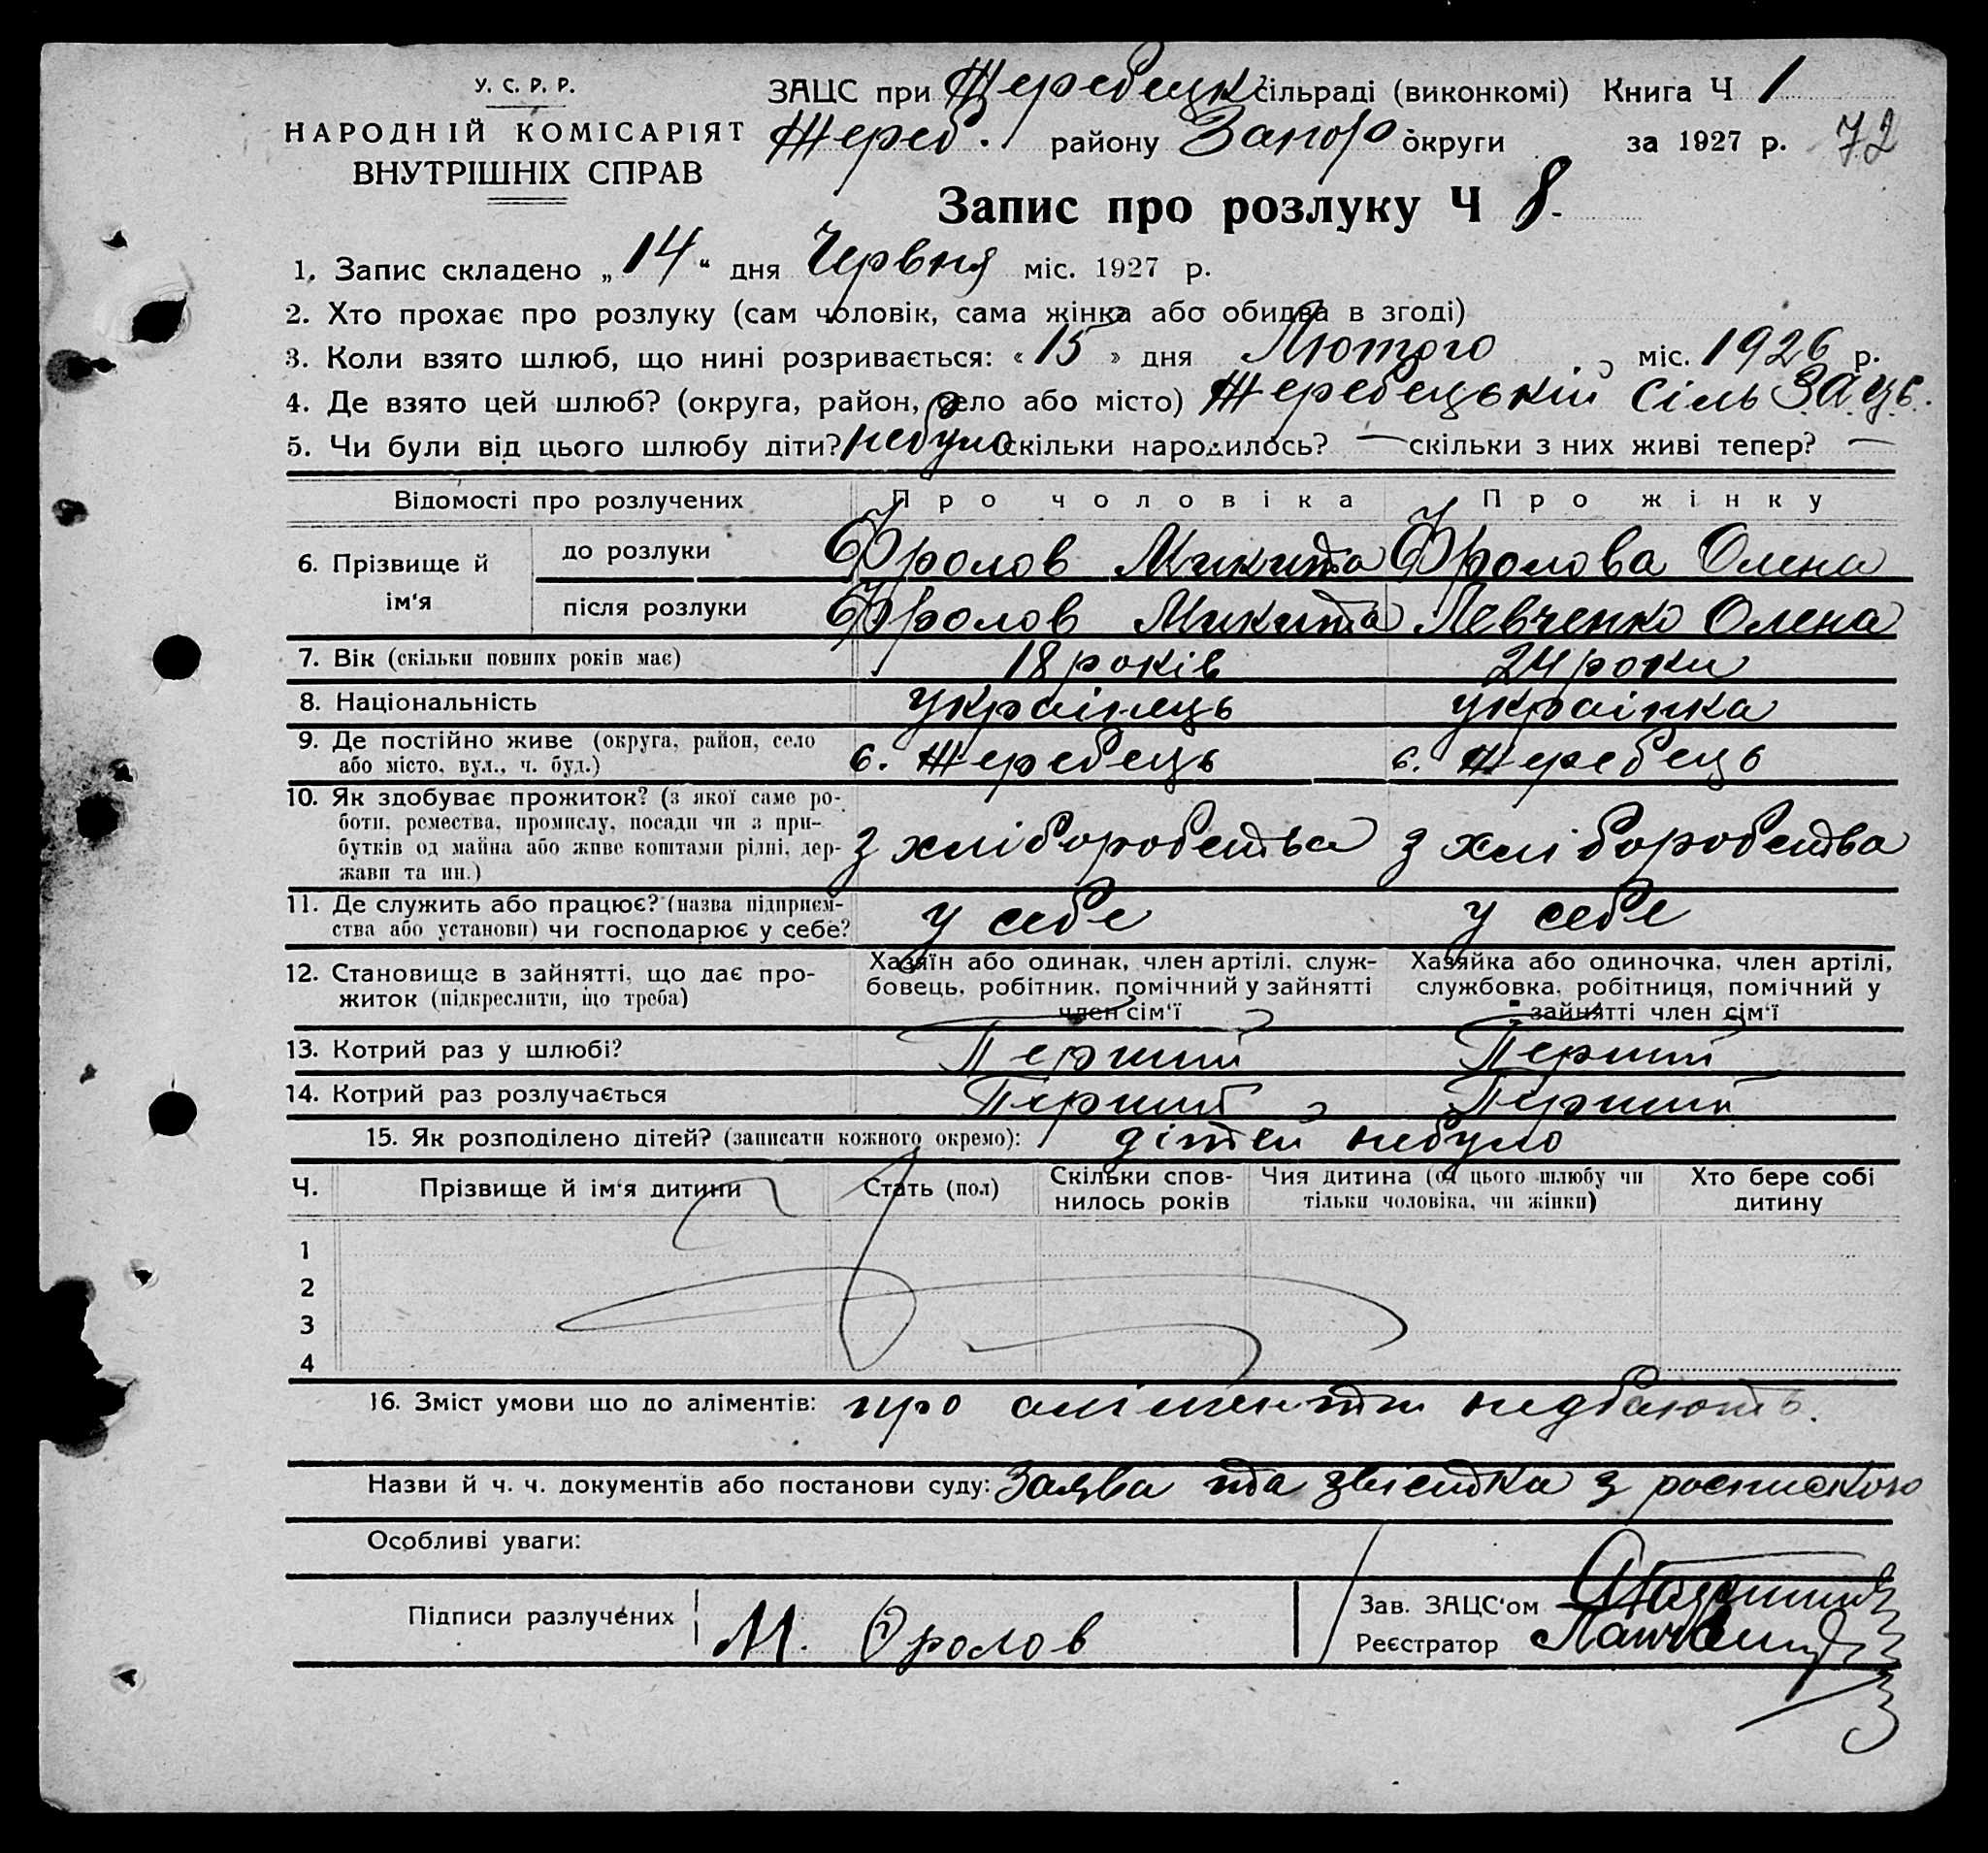 У. С. Р. Р.
НАРОДНІЙ КОМІСАРІЯТ
ВНУТРІШНІХ СПРАВ
ЗАЦС при Жеребецьк сільраді (виконкомі) Книга Ч 1
Жереб. району Запор округи за 1927 р. 72
Запис про розлуку Ч 8.
1. Запис складено „14“ дня Червня міс. 1927 р.
2. Хто прохає про розлуку (сам чоловік, сама жінка або обидва в згоді)
3. Коли взято шлюб, що нині розривається: «15» дня Лютого міс. 1926 р.
4. Де взято цей шлюб? (округа, район, село або місто) Жеребецькій Сіль З.А.Ц.С.
5. Чи були від цього шлюбу діти? небуло скільки народилось? — скільки з них живі тепер? —
Відомості про розлучених Про чоловіка Про жінку
6. Прізвище й ім‘я до розлуки Фролов Микита Фролова Олена
після розлуки Фролов Микита Левченко Олена
7. Вік (скільки повних років має) 18 років 24 роки
8. Національність українець українка
9. Де постійно живе (округа, район, село
або місто, вул., ч. буд.) с. Жеребець с. Жеребець
10. Як здобуває прожиток? (з якої саме ро-
боти, ремества, промислу, посади чи з при-
бутків од майна або живе коштами рідні, дер-
жави та ин.) з хліборобства з хліборобства
11. Де служить або працює? (назва підприєм-
ства або установи) чи господарює у себе? у себе у себе
12. Становище в зайнятті, що дає про-
житок (підкреслити, що треба)
Хазяїн або одинак, член артілі, служ-
бовець, робітник, помічний у зайнятті
член сім‘ї
Хазяйка або одиночка, член артілі,
службовка, робітниця, помічний у
зайнятті член сім‘ї
13. Котрий раз у шлюбі? Перший Перший
14. Котрий раз розлучається Перший Перший
15. Як розподілено дітей? (записати кожного окремо): дітей небуло
Ч. Прізвище й ім‘я дитини Стать (пол) Скільки спов-
нилось років Чия дитина (од цього шлюбу чи
тільки чоловіка, чи жінки) Хто бере собі
дитину
1
2
3
4
16. Зміст умови що до аліментів: про аліменти недбають.
Назви й ч. ч. документів або постанови суду: Заява та звістка з роспискою
Особливі уваги:
Підписи разлучених М. Фролов
Зав. ЗАЦС‘ом
Реєстратор